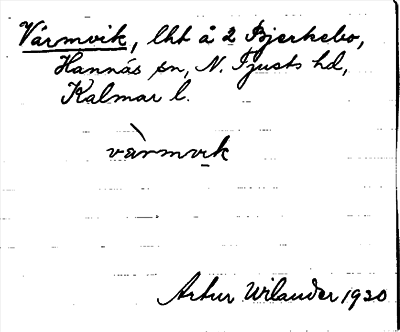 Värmvik, lht å 2 Bjerkebo,
Hannäs sn, N. Tjusts hd,
Kalmar l.
vàrmvik
Artur Wilander 1920